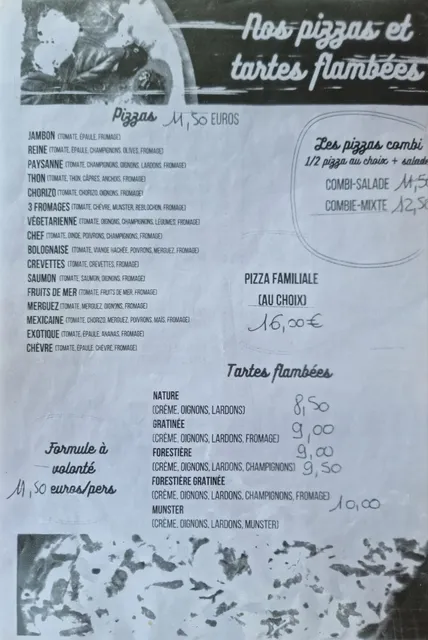 Nos pizzas et
tartes flambées
Pizzas 11,50 EUROS
JAMBON (TOMATE, ÉPAULE, FROMAGE)
REINE (TOMATE, ÉPAULE, CHAMPIGNONS, OLIVES, FROMAGE)
PAYSANNE (TOMATE, CHAMPIGNONS, OIGNONS, LARDONS, FROMAGE)
THON (TOMATE, THON, CÂPRES, ANCHOIS, FROMAGE)
CHORIZO (TOMATE, CHORIZO, OIGNONS, FROMAGE)
3 FROMAGES (TOMATE, CHÈVRE, MUNSTER, REBLOCHON, FROMAGE)
VÉGETARIENNE (TOMATE, OIGNONS, CHAMPIGNONS, LÉGUMES, FROMAGE)
CHEF (TOMATE, DINDE, POIVRONS, CHAMPIGNONS, FROMAGE)
BOLOGNAISE (TOMATE, VIANDE HACHÉE, POIVRONS, MERGUEZ, FROMAGE)
CREVETTES (TOMATE, CREVETTES, FROMAGE)
SAUMON (TOMATE, SAUMON, OIGNONS, FROMAGE)
FRUITS DE MER (TOMATE, FRUITS DE MER, FROMAGE)
MERGUEZ (TOMATE, MERGUEZ, OIGNONS, FROMAGE)
MEXICAINE (TOMATE, CHORIZO, MERGUEZ, POIVRONS, MAÏS, FROMAGE)
EXOTIQUE (TOMATE, ÉPAULE, ANANAS, FROMAGE)
CHÈVRE (TOMATE, ÉPAULE, CHÈVRE, FROMAGE)
Les pizzas combi
1/2 pizza au choix + salade
COMBI-SALADE 11,50
COMBIE-MIXTE 12,50
PIZZA FAMILIALE
(AU CHOIX)
16,00€
Tartes flambées
NATURE
(CRÉME, OIGNONS, LARDONS) 8,50
GRATINÉE
(CRÉME, OIGNONS, LARDONS, FROMAGE) 9,00
FORESTIÈRE 9,00
(CRÉME, OIGNONS, LARDONS, CHAMPIGNONS) 9,50
FORESTIÈRE GRATINÉE
(CRÉME, OIGNONS, LARDONS, CHAMPIGNONS, FROMAGE)
MUNSTER 10,00
(CRÉME, OIGNONS, LARDONS, MUNSTER)
Formule à
volonté
11,50 euros/pers